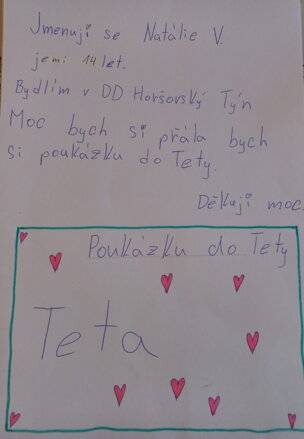 Jmenuji se Natálie V.
jemi 14 let.
Bydlím v DD Horšovský Týn
Moc bych si přála bych
si poukázku do Tety.
Děkuji moc.
Poukázku do Tety
Teta